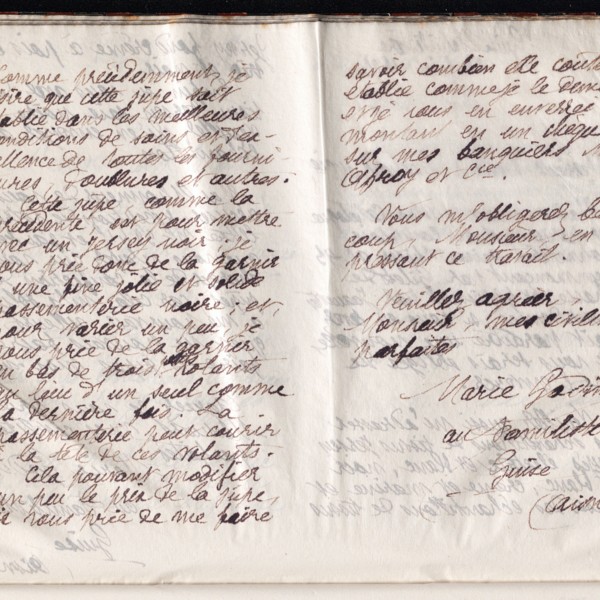 Comme précédemment, je
sire que cette jupe soit
tablie dans les meilleures
onditions de soins et d'ex-
ellence de toutes les fourni-
ures, doublures et autres.
Cette jupe comme la
précédente, est pour mettre
avec un jersey noir. je
vous prie donc de la garnir
d'une fine jolie et solide
passementerie noire, et,
pour varier un peu, je
vous prie de la garnir
en bas de trois volants
au lieu d'un seul comme
la dernière fois. La
passementerie peut courir
à la tête de ces volants.
Cela pouvant modifier
un peu le prix de la jupe,
je vous prie de me faire
savoir combien elle coûte
établie comme je le dem
et je vous en enverrai
montant en un chèque
sur mes banquiers M
et Cie.
Vous m'obligerez b
coup, Monsieur, en
pressant ce travail.
Veuillez agréer,
Monsieur, mes civili
parfaites
Marie Godin
au Familist
Guise
(Aisn